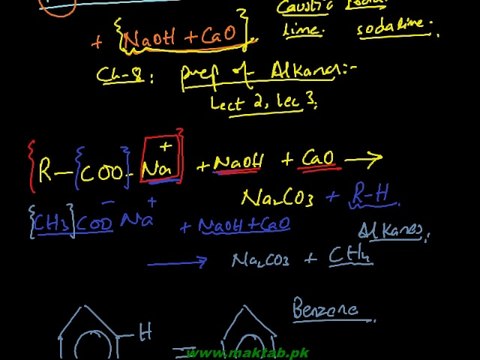 Caustic Soda
+ {NaOH + CaO} lime. sodalime.
Ch-8: prep of Alkanes:-
Lect 2, Lec 3.
{R – {COO} – Na⁺} + NaOH + CaO →
Na₂CO₃ + R-H
{CH3}COO⁻ Na⁺ + NaOH + CaO Alkanes.
→ Na₂CO₃ + CH4
Benzene
H =
www.maktab.pk